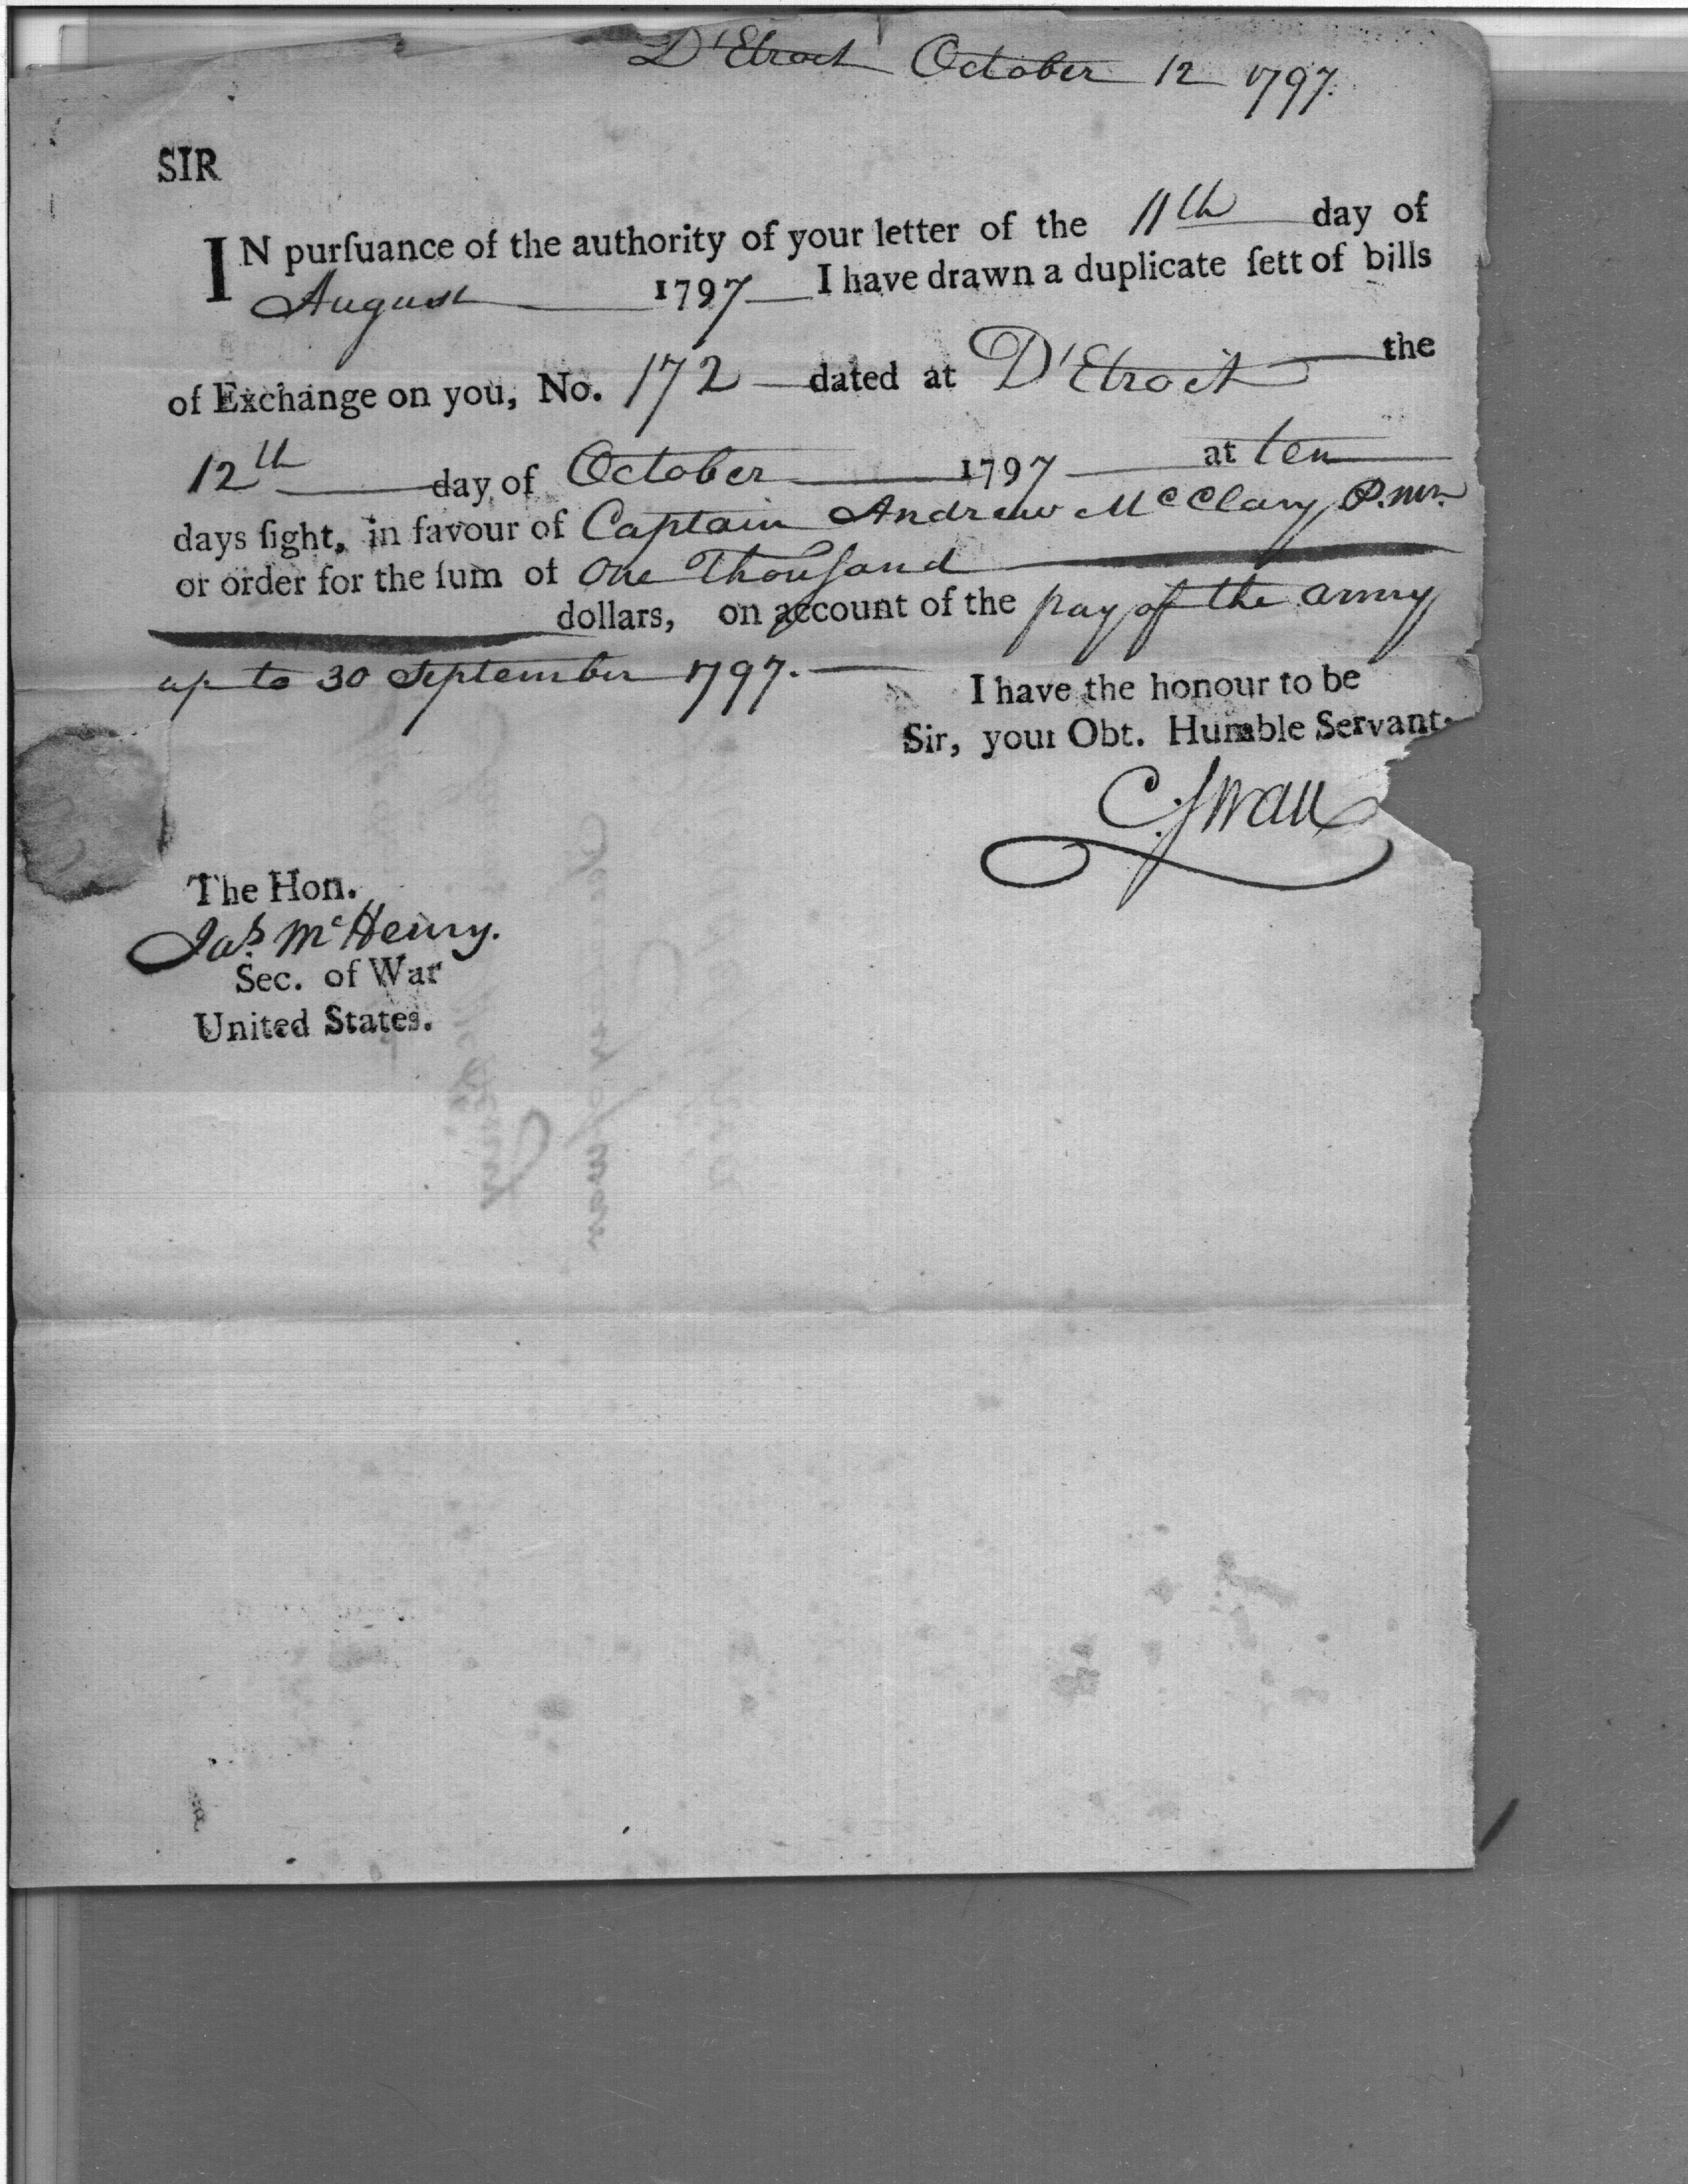 D'Etroit October 12 1797.
SIR
IN purſuance of the authority of your letter of the 11th day of
August 1797 I have drawn a duplicate ſett of bills
of Exchange on you, No. 172 dated at D'Etroit the
12th day of October 1797 at ten
days ſight, in favour of Captain Andrew McClary P.mr.
or order for the ſum of One Thouſand
dollars, on account of the pay of the army
up to 30 September 1797.
I have the honour to be
Sir, your Obt. Humble Servant.
C. Swan
The Hon.
Jas. McHenry.
Sec. of War
United States.